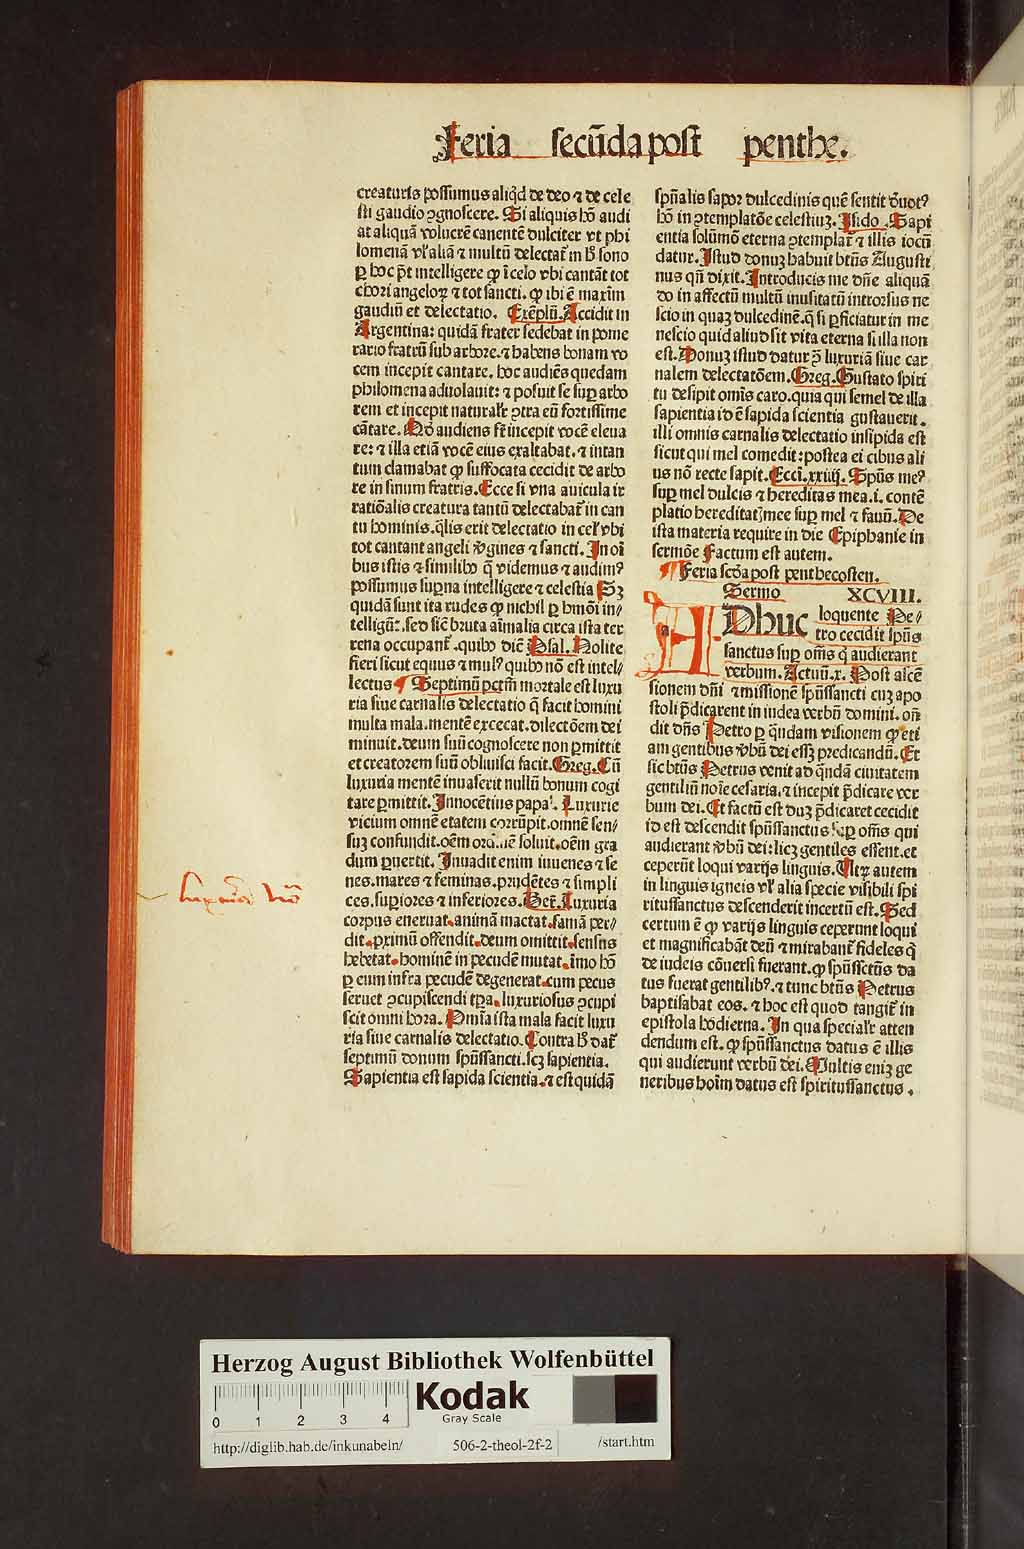 Feria secūda post penthe.
creaturis possumus aliqd de deo ⁊ de cele
sti gaudio ꝯgnoscere. Si aliquis hō audi
at aliquā volucrē canentē dulciter vt phi
lomenā vl' aliā ⁊ multū delectat̄ in h̄ sono
ꝑ hoc p̄t intelligere ꝙ ī celo vbi cantāt tot
chori angeloꝝ ⁊ tot sancti. ꝙ ibi ē maxim̄
gaudiū et delectatio. Exēplū. Accidit in
Argentina: quidā frater sedebat in pome
rario fratrū sub arbore. ⁊ habens bonam vo
cem incepit cantare. hoc audiēs quedam
philomena aduolauit: ⁊ posuit se suꝑ arbo
rem et incepit natural'r ꝯtra eū fortissime
cātare. Qd' audiens fr̄ incepit vocē eleua
re: ⁊ illa etiā vocē eius exaltabat. ⁊ intan
tum clamabat ꝙ suffocata cecidit de arbo
re in sinum fratris. Ecce si vna auicula ir
ratiōalis creatura tantū delectabat̄ in can
tu hominis. q̄lis erit delectatio in cel' vbi
tot cantant angeli v̄gines ⁊ sancti. In oī
bus istis ⁊ similibꝰ q̄ videmus ⁊ audimꝰ
possumus suꝑna intelligere ⁊ celestia Sꝫ
quidā sunt ita rudes ꝙ nichil ꝑ hmōi in/
telligūt. sed sic̄ bruta aīmalia circa ista ter
rena occupant̄. quibꝰ dic̄ Psal. Nolite
fieri sicut equus ⁊ mulꝰ quibꝰ nō est intel/
lectus ¶ Septimū pctm̄ mortale est luxu
ria siue carnalis delectatio q̄ facit homini
multa mala. mentē excecat. dilectōem dei
minuit. deum suū cognoscere non ꝑmittit
et creatorem suū obliuisci facit. Greg. Cū
luxuria mentē inuaserit nullū bonum cogi
tare ꝑmittit. Innocētius papa. Luxurie
vicium omnē etatem corrūpit. omnē sen/
suꝫ confundit. oēm ordinē soluit. oēm gra
dum ꝑuertit. Inuadit enim iuuenes ⁊ se
nes. mares ⁊ feminas. prudētes ⁊ simpli
ces. suꝑiores ⁊ inferiores. Luxuria
corpus eneruat. animā mactat. famā per/
dit. ꝓximū offendit. deum omittit. sensus
hebetat. hominē in pecudē mutat. imo hō
ꝑ eum infra pecudē degenerat. cum pecus
seruet ꝯcupiscendi tꝑa. luxuriosus ꝯcupi
scit omni hora. Om̄ia ista mala facit luxu
ria siue carnalis delectatio. Contra h̄ dat̄
septimū donum sp̄ussancti. scꝫ sapientia.
Sapientia est sapida scientia. ⁊ est quidā
sp̄ualis sapor dulcedinis quē sentit d̄uotꝰ
hō in ꝯtemplatōe celestiuꝫ. Isido. Sapi
entia solūmō eterna ꝯtemplat̄ ⁊ illis iocū
datur. Istud donuꝫ habuit btūs Augusti
nus qn̄ dixit. Introducis me dn̄e aliquā
do in affectū multū inusitatū introrsus ne
scio in quaꝫ dulcedinē. q̄ si ꝑficiatur in me
nescio quid aliud sit vita eterna si illa non
est. Donuꝫ istud datur ꝯ̄ luxuriā siue car
nalem delectatōem. Greg. Gustato spiri
tu desipit omīs caro. quia qui semel de illa
sapientia id ē sapida scientia gustauerit.
illi omnis carnalis delectatio insipida est
sicut qui mel comedit: postea ei cibus ali
us nō recte sapit. Ecci. xxiiij. Sp̄us meꝰ
suꝑ mel dulcis ⁊ hereditas mea. i. contē
platio hereditatꝭ mee suꝑ mel ⁊ fauū. De
ista materia require in die Epiphanie in
sermōe Factum est autem.
¶ Feria scd̄a post penthecosten.
Sermo XCVIII.
ADhuc loquente Pe/
tro cecidit sp̄us
sanctus suꝑ oēs q̄ audierant
verbum. Actuū. x. Post ascē
sionem dn̄i ⁊ missionē sp̄ussancti cuꝫ apo
stoli p̄dicarent in iudea verbū domini. on̄
dit dn̄s Petro ꝑ q̄ndam visionem ꝙ eti
am gentibus v̄bū dei essꝫ predicandū. Et
sic btūs Petrus venit ad q̄ndā ciuitatem
gentiliū noīe cesaria. ⁊ incepit p̄dicare ver
bum dei. Et factū est duꝫ p̄dicaret cecidit
id est descendit sp̄ussanctus suꝑ oēs qui
audierant v̄bū dei: licꝫ gentiles essent. et
ceperūt loqui varijs linguis. Vtꝝ autem
in linguis igneis vl' alia specie visibili spi
ritussanctus descenderit incertū est. Sed
certum ē ꝙ varijs linguis ceperunt loqui
et magnificabāt deū ⁊ mirabant̄ fideles q̄
de iudeis cōuersi fuerant. ꝙ sp̄ussctūs da
tus fuerat gentilibꝰ. ⁊ tunc btūs Petrus
baptisabat eos. ⁊ hoc est quod tangit̄ in
epistola hodierna. In qua special'r atten
dendum est. ꝙ sp̄ussanctus datus ē illis
qui audierunt verbū dei. Multis eniꝫ ge
neribus hoīm datus est spiritussanctus.
Herzog August Bibliothek Wolfenbüttel
0 1 2 3 4
Kodak
Gray Scale
http://diglib.hab.de/inkunabeln/ 506-2-theol-2f-2 /start.htm